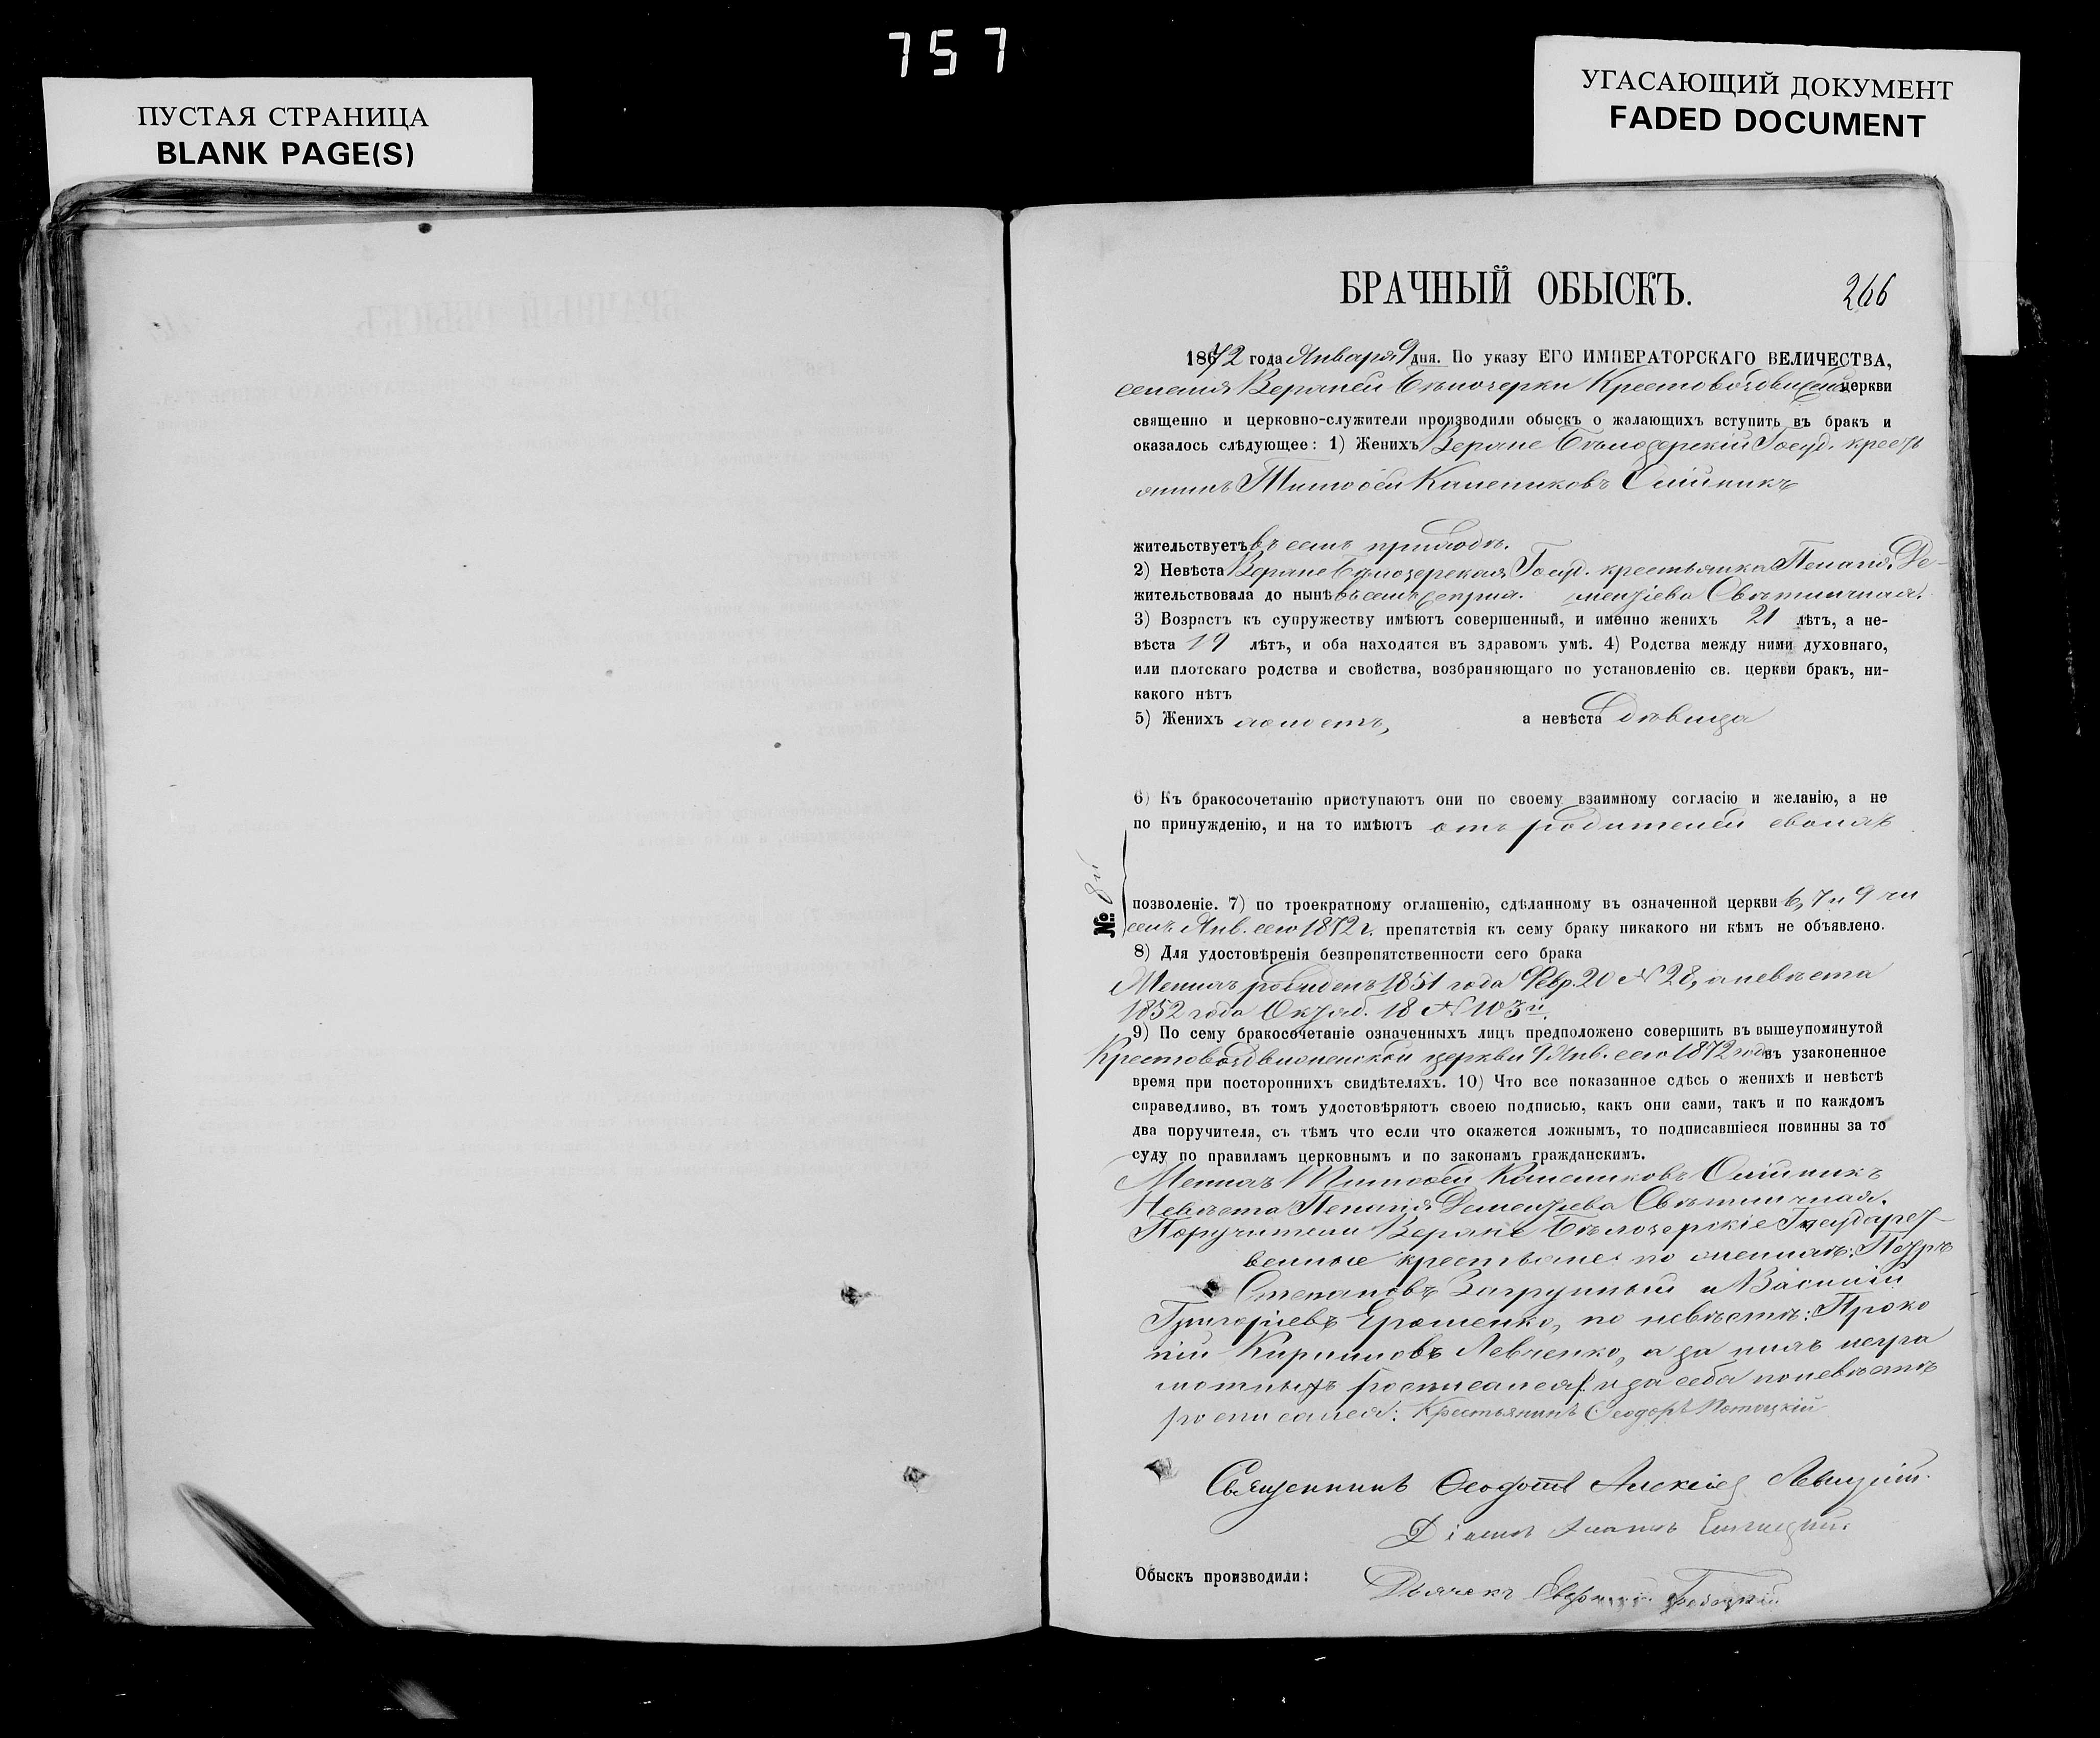 757
ПУСТАЯ СТРАНИЦА
BLANK PAGE(S)
УГАСАЮЩИЙ ДОКУМЕНТ
FADED DOCUMENT
БРАЧНЫЙ ОБЫСКЪ.
266
1872 года Января 9 дня. По указу ЕГО ИМПЕРАТОРСКАГО ВЕЛИЧЕСТВА,
селенія Верхней Бѣлозерки Крестовоздвиженской церкви
священно и церковно-служители производили обыскъ о жалающихъ вступить въ бракъ и
оказалось слѣдующее: 1) Женихъ Верхне Бѣлозерскій Госуд. кресть
янинъ Тимофей Калениковъ Олійникъ
жительствуетъ въ семъ приходѣ.
2) Невѣста Верхне Бѣлозерская Госуд. крестьянка Пелагія Де-
жительствовала до нынѣ въ семъ же прих. ментіева Свѣтличная.
3) Возрастъ къ супружеству имѣютъ совершенный, и именно женихъ 21 лѣтъ, а не-
вѣста 19 лѣтъ, и оба находятся въ здравомъ умѣ. 4) Родства между ними духовнаго,
или плотскаго родства и свойства, возбраняющаго по установленію св. церкви бракъ, ни-
какого нѣтъ
5) Женихъ холостъ, а невѣста дѣвица
6) Къ бракосочетанію приступаютъ они по своему взаимному согласію и желанію, а не
по принужденію, и на то имѣютъ отъ родителей своихъ
№
позволеніе. 7) по троекратному оглашенію, сдѣланному въ означенной церкви 6, 7 и 9 чи
селъ Янв. сего 1872 г. препятствія къ сему браку никакого ни кѣмъ не объявлено.
8) Для удостовѣренія безпрепятственности сего брака
Женихъ рожденъ 1851 года Февр. 20 № 28, а невѣста
1852 года Октяб. 18 № 103й.
9) По сему бракосочетаніе означенныхъ лицъ предположено совершить въ вышеупомянутой
Крестовоздвиженской церкви 9 Янв. сего 1872 года въ узаконенное
время при посторонихъ свидѣтеляхъ. 10) Что все показанное сдѣсь о женихѣ и невѣстѣ
справедливо, въ томъ удостовѣряютъ своею подписью, какъ они сами, такъ и по каждомъ
два поручителя, съ тѣмъ что если что окажется ложнымъ, то подписавшіеся повинны за то
суду по правиламъ церковнымъ и по законамъ гражданскимъ.
Женихъ Тимофей Калениковъ Олійникъ
Невѣста Пелагія Дементіева Свѣтличная.
Поручители Верхне Бѣлозерскіе Государст-
венные крестьяне: по женихѣ: Петръ
Степановъ Загрунный и Василій
Григоріевъ Ерошенко, по невѣстѣ: Проко
пій Кириловъ Левченко, а за нихъ негра
мотныхъ росписался и за себя по невѣстѣ
росписался: Крестьянинъ Феодоръ Потоцкій
Священникъ Феодотъ Алексіевъ Левицкій.
Діаконъ Іоаннъ
Обыскъ производили:
Дьячекъ